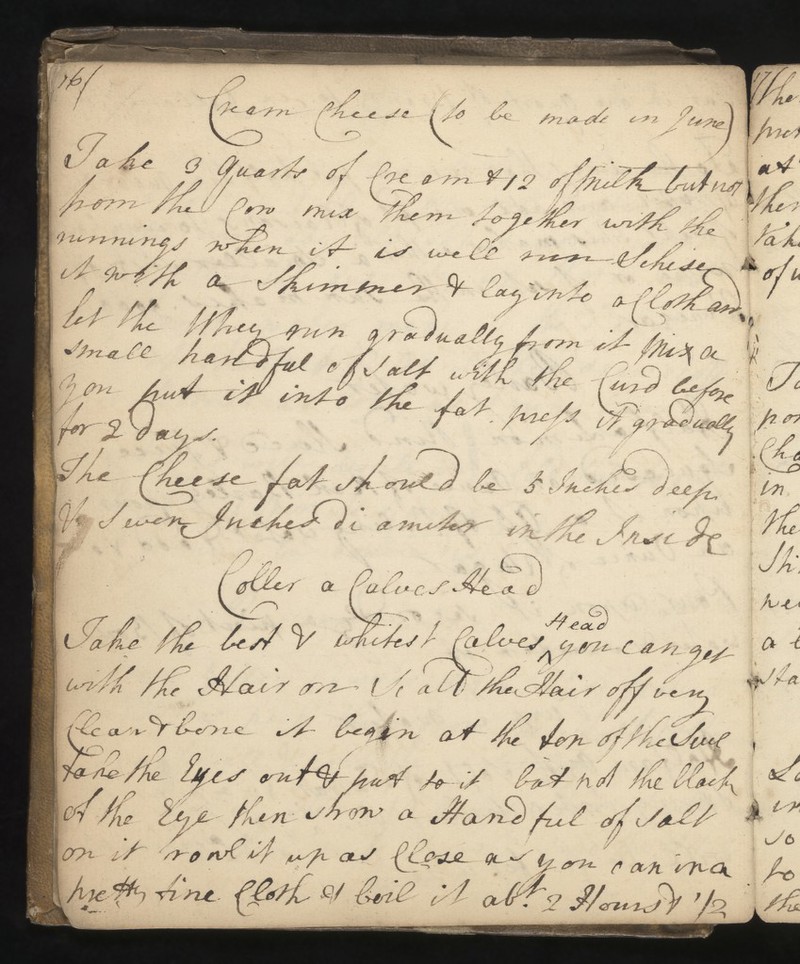 16/
Cream Cheese (to be made in June)
Take 3 Quarts of Cream & 12 of Milk but not
from the Cow mix them together with the
runnings when it is well run
it with a Skimmer & lay into a Cloth and
let the Whey run gradually from it Mix a
small handful of Salt with the Curd before
you put it into the fat press it gradually
for 2 days.
The Cheese fat should be 5 Inches deep
& Seven Inches diameter in the Inside
Coller a Calves Head
Take the best & whitest Calves Head you can get
with the Hair on Scald the Hair off very
Clean & bone it begin at the top of the
take the Eyes out & put to it but not the black
of the Eye then strow a Handful of Salt
on it rowl it up as Close as you can in a
pretty fine Cloth & boil it abt. 2 Hours & 1/2